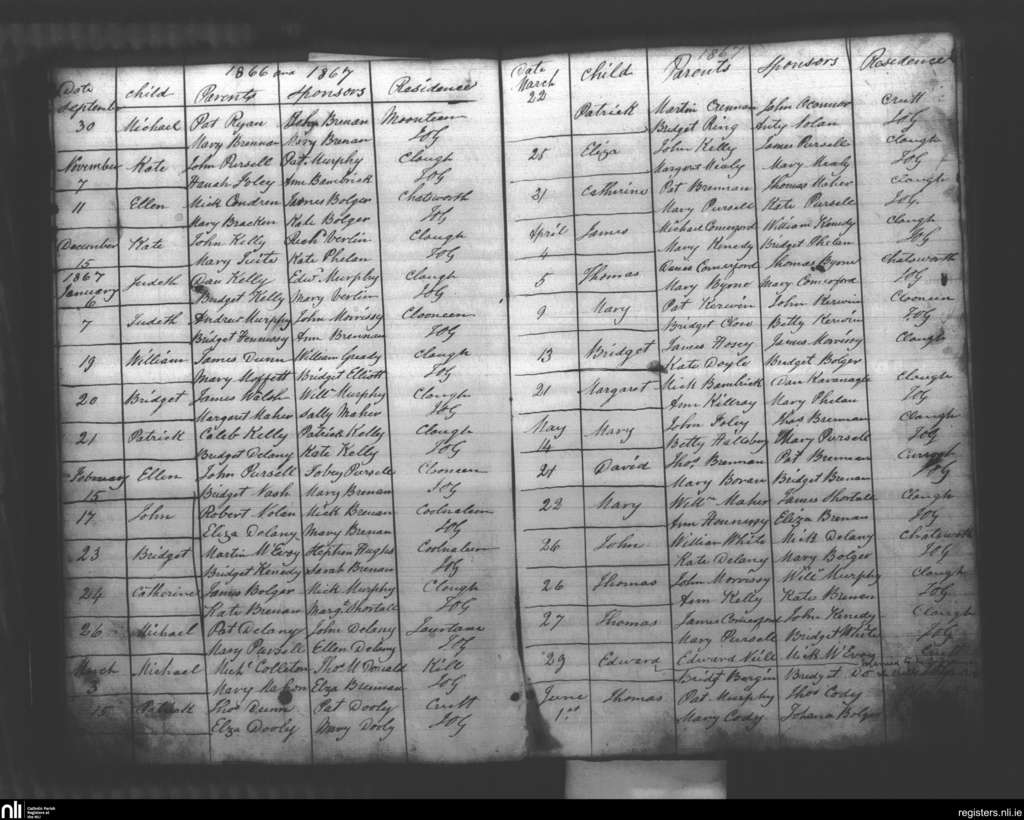 1866 and 1867
Date Child Parents Sponsors Residence
September
30 Michael Pat Ryan John Brenan Moonteen
Mary Brennan Mary Brenan JOG
November Kate John Pursell Pat Murphy Clough
7 Hanah Foley Ann Bambrick JOG
11 Ellen Mick Condren James Bolger Chatsworth
Mary Bracken Kate Bolger JOG
December Kate John Kelly Verlin Clough
15 Mary Kate Phelan JOG
1867
January Judeth Dan Kelly Edwd Murphy Clough
6 Bridget Kelly Mary Verlin JOG
7 Judeth Andrew Murphy John Morrissy Clooneen
Bridget Hennissy Ann Brennan JOG
19 William James Dunn William Grady Clough
Mary Moffett Bridget Elliott JOG
20 Bridget James Walsh Willm Murphy Clough
Margaret Maher Sally Maher JOG
21 Patrick Caleb Kelly Patrick Kelly Clough
Bridget Delany Kate Kelly JOG
February Ellen John Pursell Tobey Pursell Clooneen
15 Bridget Nash Mary Brenan JOG
17 John Robert Nolan Mick Brenan
Eliza Delany Mary Brenan JOG
23 Bridget Martin McEvoy Stephen Hughs
Bridget Kenedy Sarah Brenan JOG
24 Catherine James Bolger Mick Murphy Clough
Kate Brenan Margt Shortall JOG
26 Michael Pat Delany John Delany
Mary Pursell Ellen Delany JOG
March Michael Michl Thos McDonald Kill
3 Mary Eliza Brennan JOG
15 Patrick Thos Dunn Pat Dooly Crutt
Eliza Dooly Mary Dooly JOG
1867
Date Child Parents Sponsors Residence
March
22 Patrick Martin Crennan John OConnor Crutt
Bridget Ring Anty Nolan JOG
25 Eliza John Kelly James Pursell Clough
Margaret Mealy Mary Mealy JOG
31 Catherine Pat Brennan Thomas Maher Clough
Mary Pursell Kate Pursell JOG
April James Michael Comerford William Kenedy Clough
4 Mary Kenedy Bridget Phelan JOG
5 Thomas James Comerford Thomas Byrne Chatsworth
Mary Byrne Mary Comerford JOG
9 Mary Pat Kerwin John Kerwin Clooneen
Bridget Betty Kerwin JOG
13 Bridget James Hosey James Morrissy Clough
Kate Doyle Bridget Bolger
21 Margaret Mick Bambrick Dan Kavanagh Clough
Ann Mary Phelan JOG
May Mary John Foley Thos Brennan Clough
14 Betty Mary Pursell JOG
21 David Thos Brennan Pat Brennan
Mary Boran Bridget Brenan JOG
22 Mary Willm Maher James Shortall Clough
Ann Hennissy Eliza Brenan JOG
26 John William White Mick Delany Chatsworth
Kate Delany Mary Bolger JOG
26 Thomas John Morrissy Willm Murphy Clough
Ann Kelly Kate Brenan JOG
27 Thomas James Comerford John Kenedy Clough
Mary Pursell Bridget White JOG
29 Edward Edward Neill Mick McEvoy Crutt
Bridgt Bergin Bridget Do
June Thomas Pat Murphy Thos Cody
1st Mary Cody Johana Bolger
nli Catholic Parish Registers at the NLI
registers.nli.ie